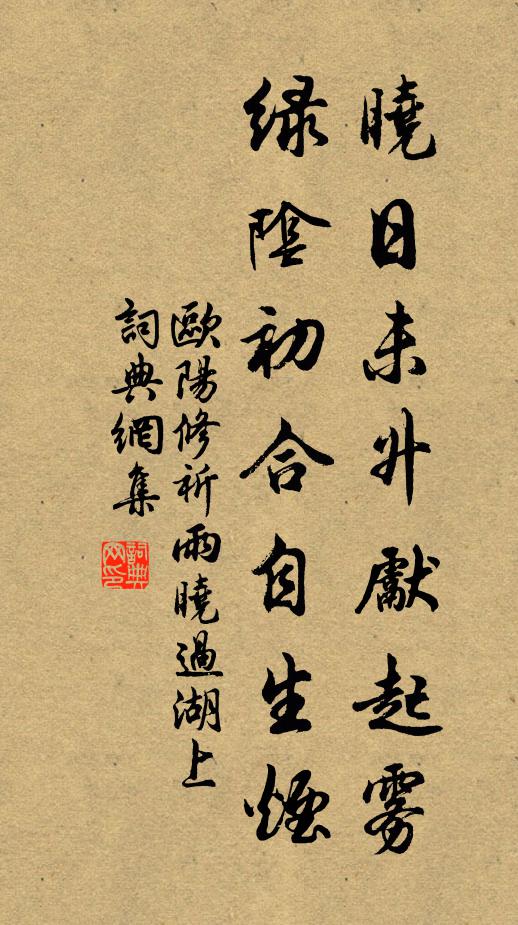 曉日未升獻起霧
緑陰初合自生煙
歐陽修祈雨曉過湖上
詞典網集
詞典网印